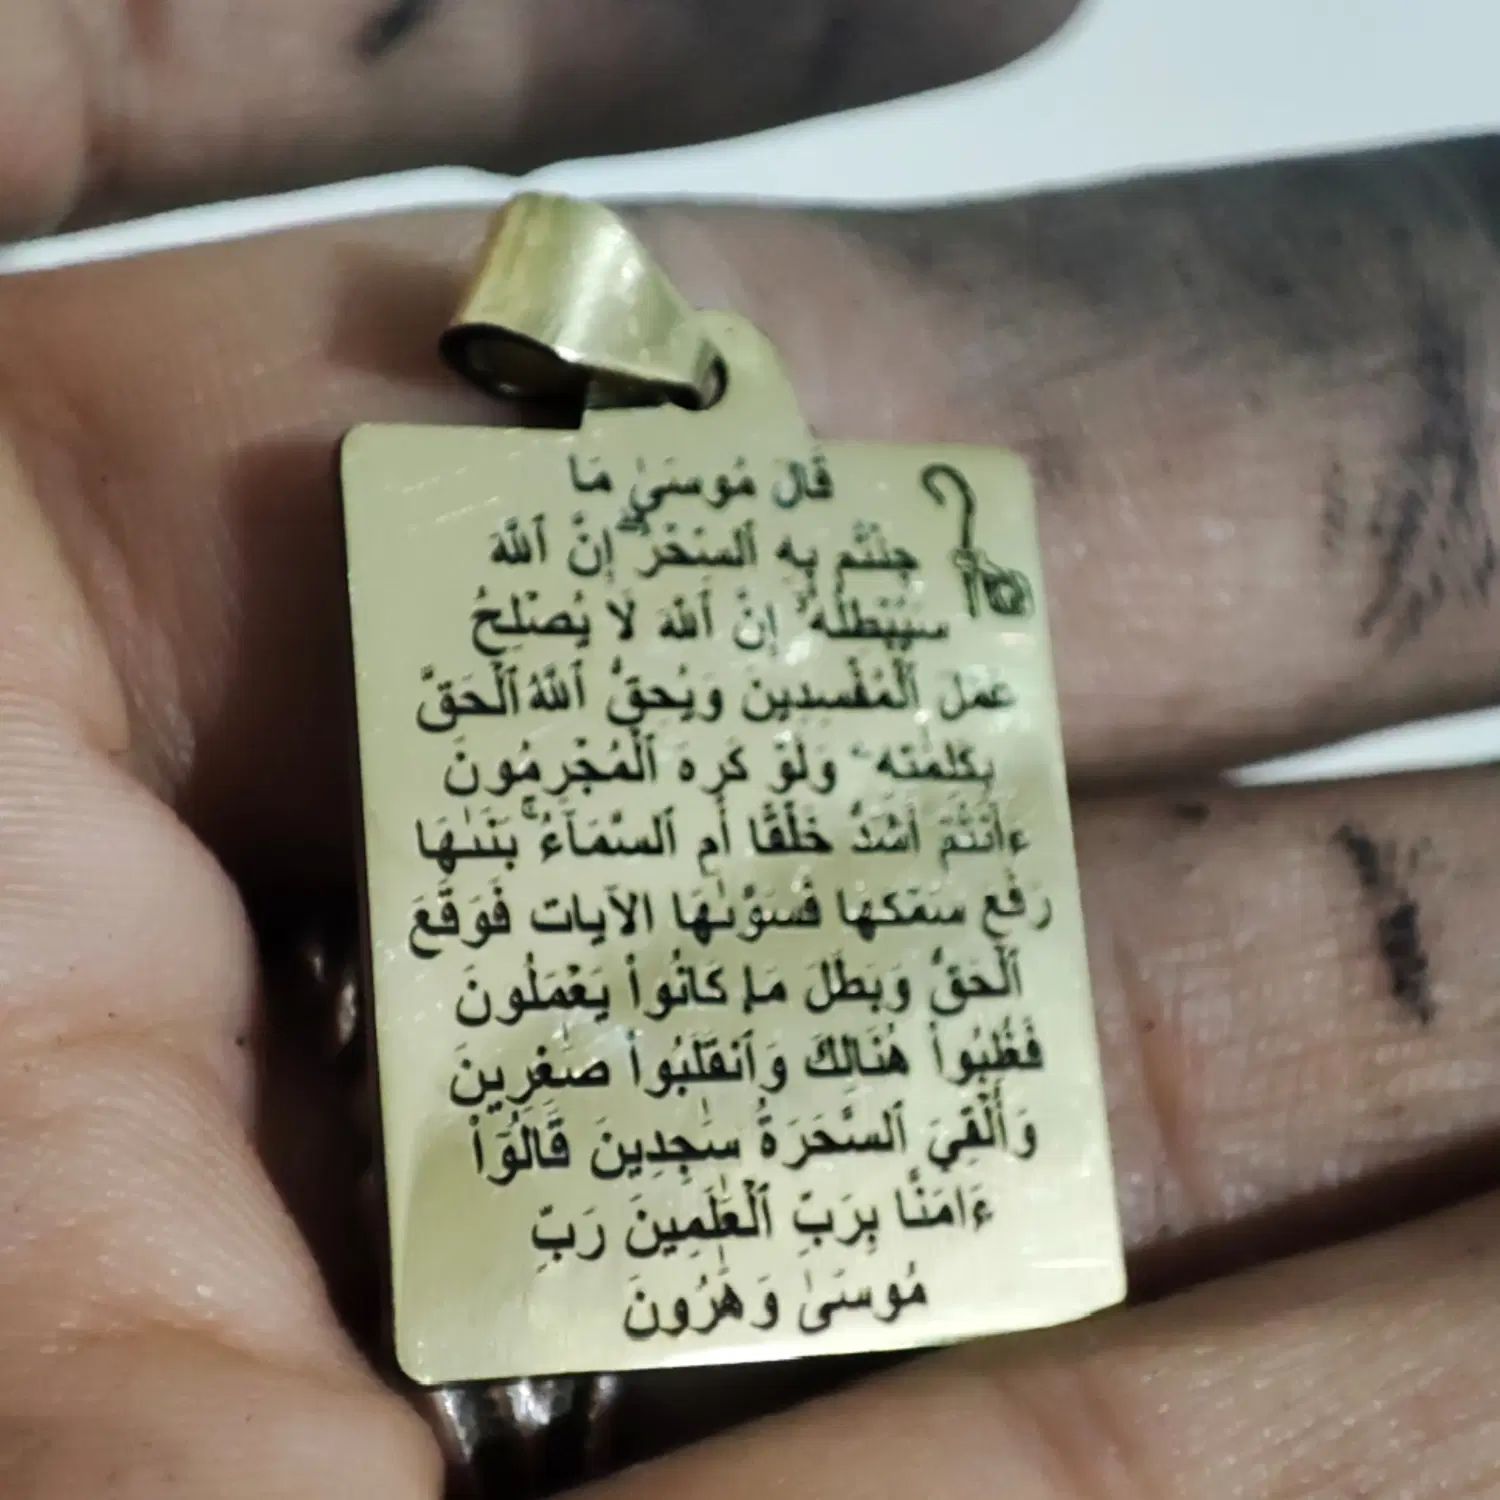 قَالَ مُوسَىٰ مَا
جِئْتُم بِهِ ٱلسِّحْرُ ۖ إِنَّ ٱللَّهَ
سَيُبْطِلُهُۥٓ ۖ إِنَّ ٱللَّهَ لَا يُصْلِحُ
عَمَلَ ٱلْمُفْسِدِينَ وَيُحِقُّ ٱللَّهُ ٱلْحَقَّ
بِكَلِمَٰتِهِۦ وَلَوْ كَرِهَ ٱلْمُجْرِمُونَ
ءَأَنتُمْ أَشَدُّ خَلْقًا أَمِ ٱلسَّمَآءُ ۚ بَنَىٰهَا
رَفَعَ سَمْكَهَا فَسَوَّىٰهَا الآيات فَوَقَعَ
ٱلْحَقُّ وَبَطَلَ مَا كَانُوا۟ يَعْمَلُونَ
فَغُلِبُوا۟ هُنَالِكَ وَٱنقَلَبُوا۟ صَٰغِرِينَ
وَأُلْقِيَ ٱلسَّحَرَةُ سَٰجِدِينَ قَالُوٓا۟
ءَامَنَّا بِرَبِّ ٱلْعَٰلَمِينَ رَبِّ
مُوسَىٰ وَهَٰرُونَ